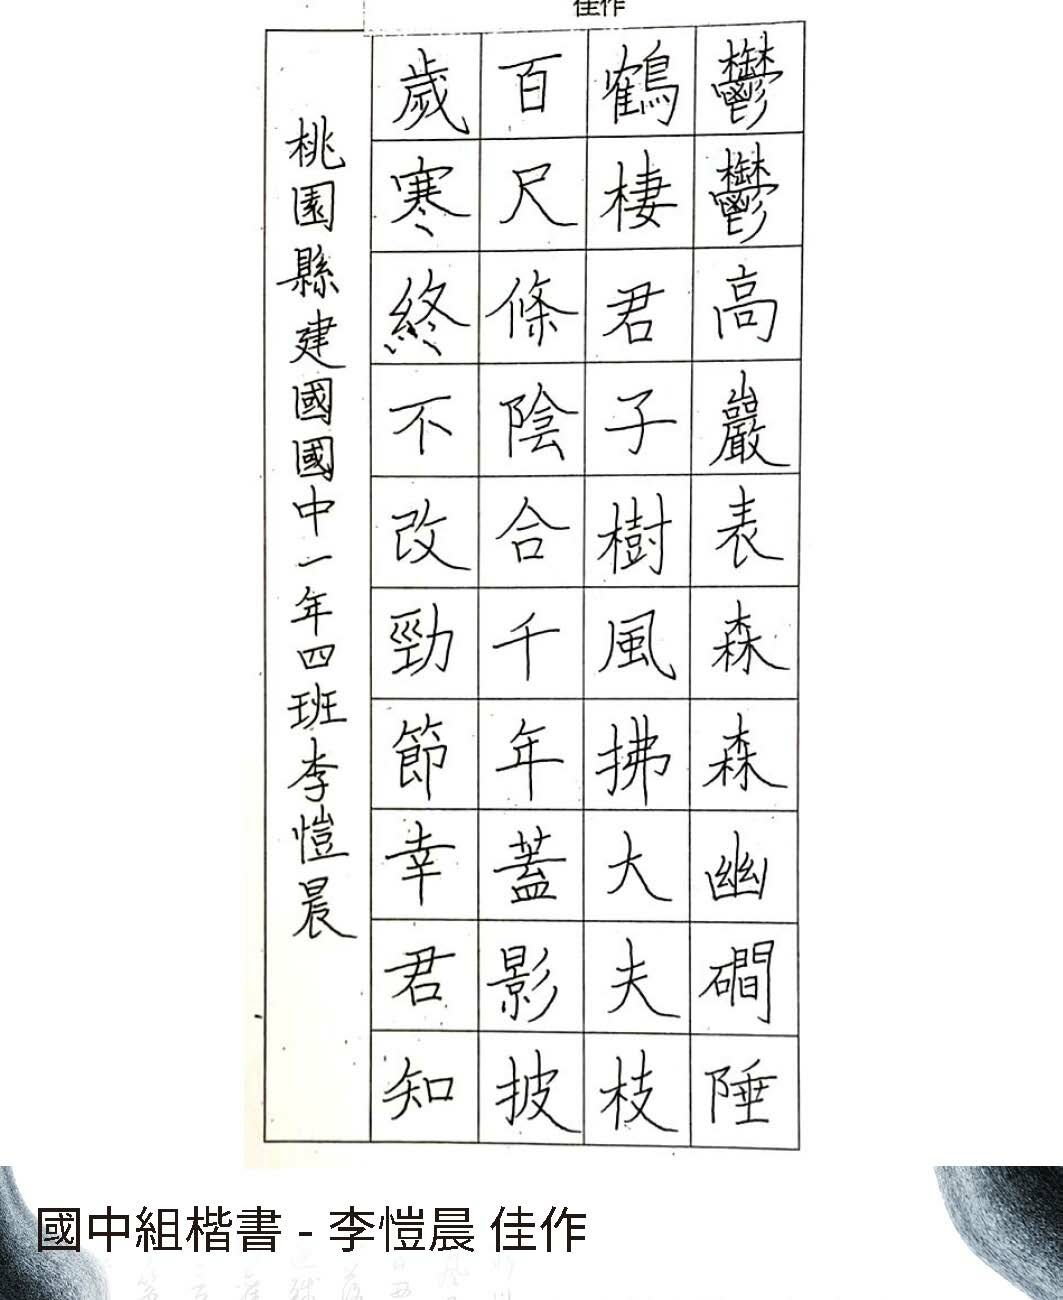 佳作
鬱鬱高巖表森森幽磵陲
鶴棲君子樹風拂大夫枝
百尺條陰合千年蓋影披
歲寒終不改勁節幸君知
桃園縣建國國中一年四班李愷晨
國中組楷書 - 李愷晨 佳作